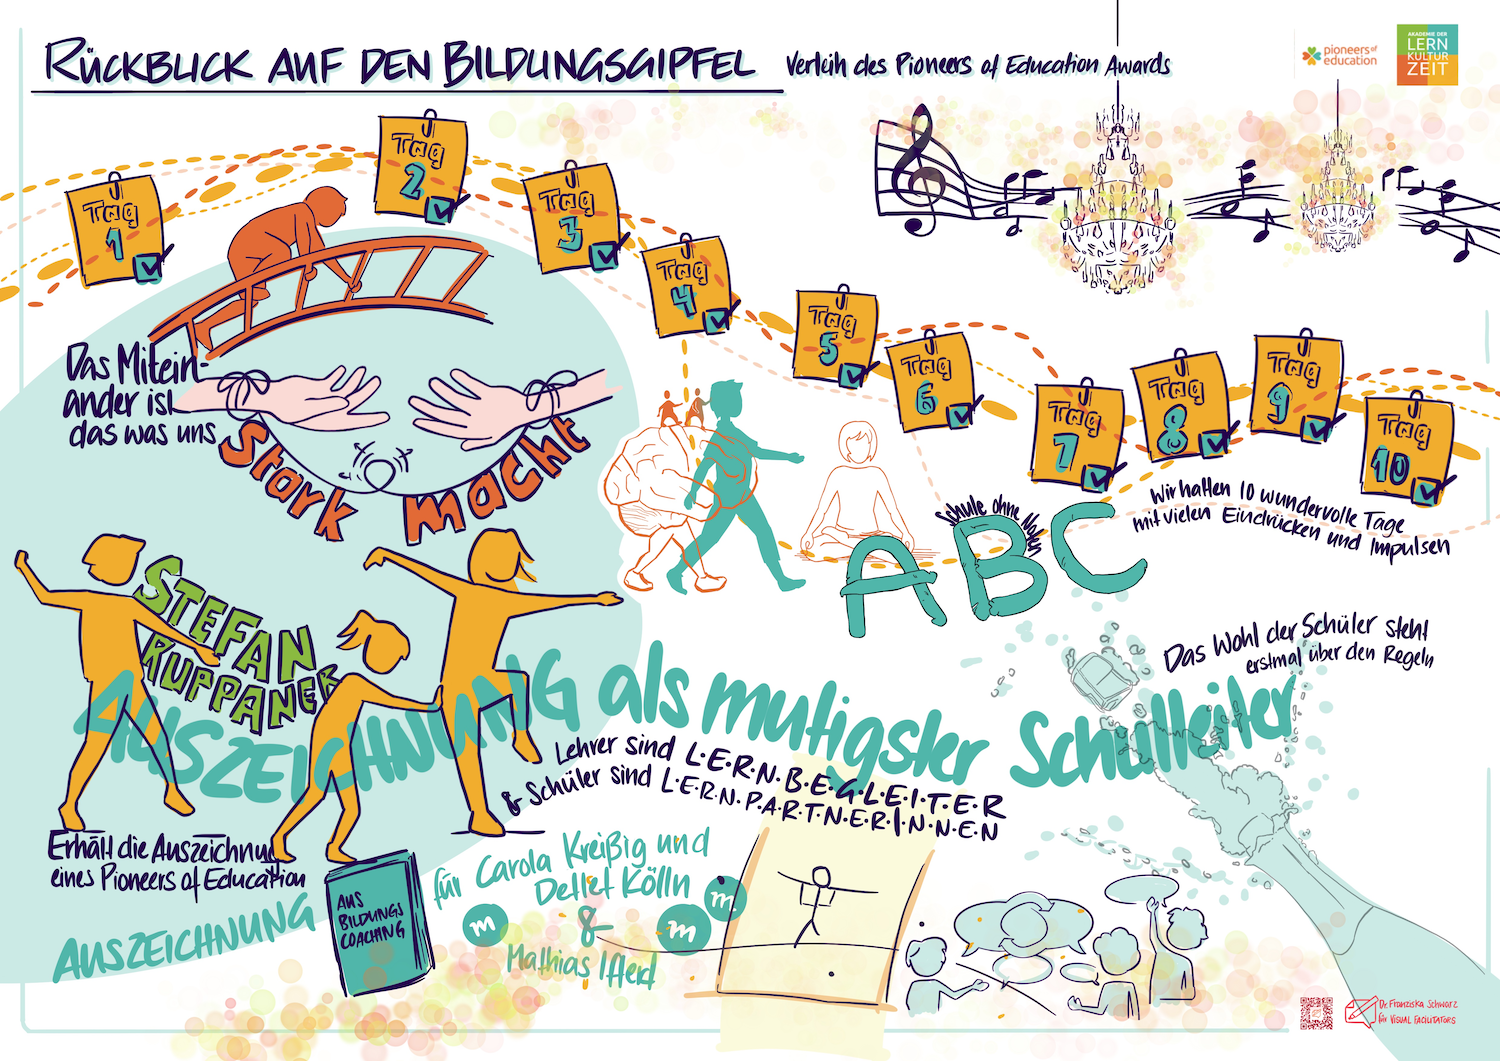 RÜCKBLICK AUF DEN BILDUNGSGIPFEL
Verleih des Pioneers of Education Awards
pioneers of
education
AKADEMIE DER
LERN
KULTUR
ZEIT
Tag
1
Tag
2
Tag
3
Tag
4
Tag
5
Tag
6
Tag
7
Tag
8
Tag
9
Tag
10
Das Mitein-
ander ist
das was uns
Stark macht
Schule ohne
ABC
Wir hatten 10 wundervolle Tage
mit vielen Eindrücken und Impulsen
STEFAN
RUPPANER
AUSZEICHNUNG als mutigster Schulleiter
Das Wohl der Schüler steht
erstmal über den Regeln
Lehrer sind L·E·R·N·B·E·G·L·E·I·T·E·R
& Schüler sind L·E·R·N·P·A·R·T·N·E·R·I·N·N·E·N
Erhält die Auszeichnung
eines Pioneers of Education
AUSZEICHNUNG
AUS
BILDUNGS
COACHING
für Carola Kreißig und
Detlef Kölln
&
Mathias Iffert
m
m
m
Dr. Franziska Schwarz
für VISUAL FACILITATORS